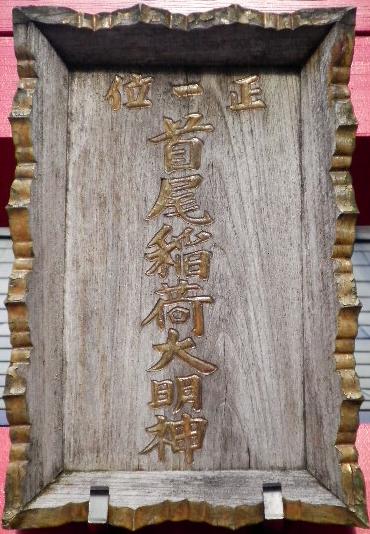 正一位
首尾稲荷大明神